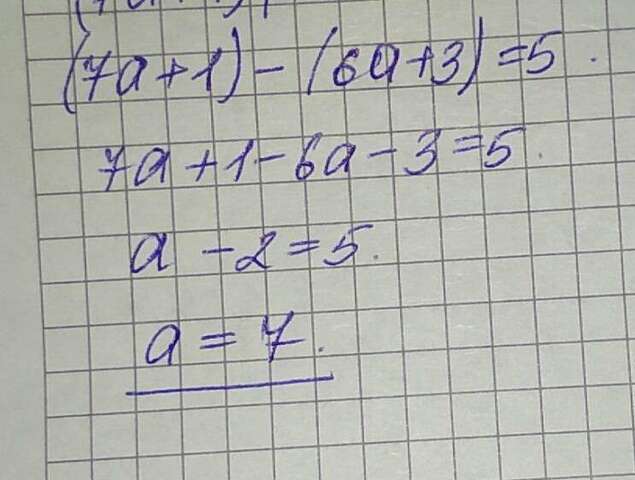 (7a+1)-(6a+3)=5.
7a+1-6a-3=5.
a-2=5.
a=7.